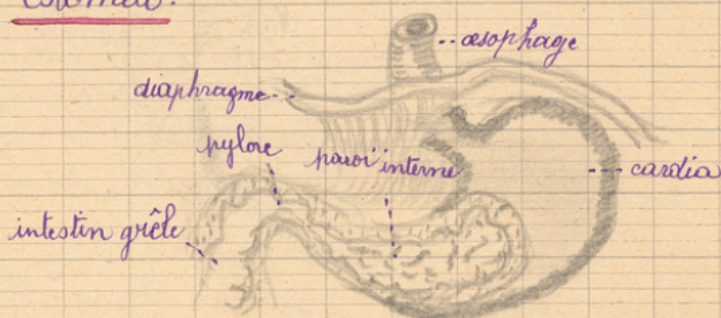 Estomac.
œsophage
diaphragme
pylore
paroi interne
cardia
intestin grêle